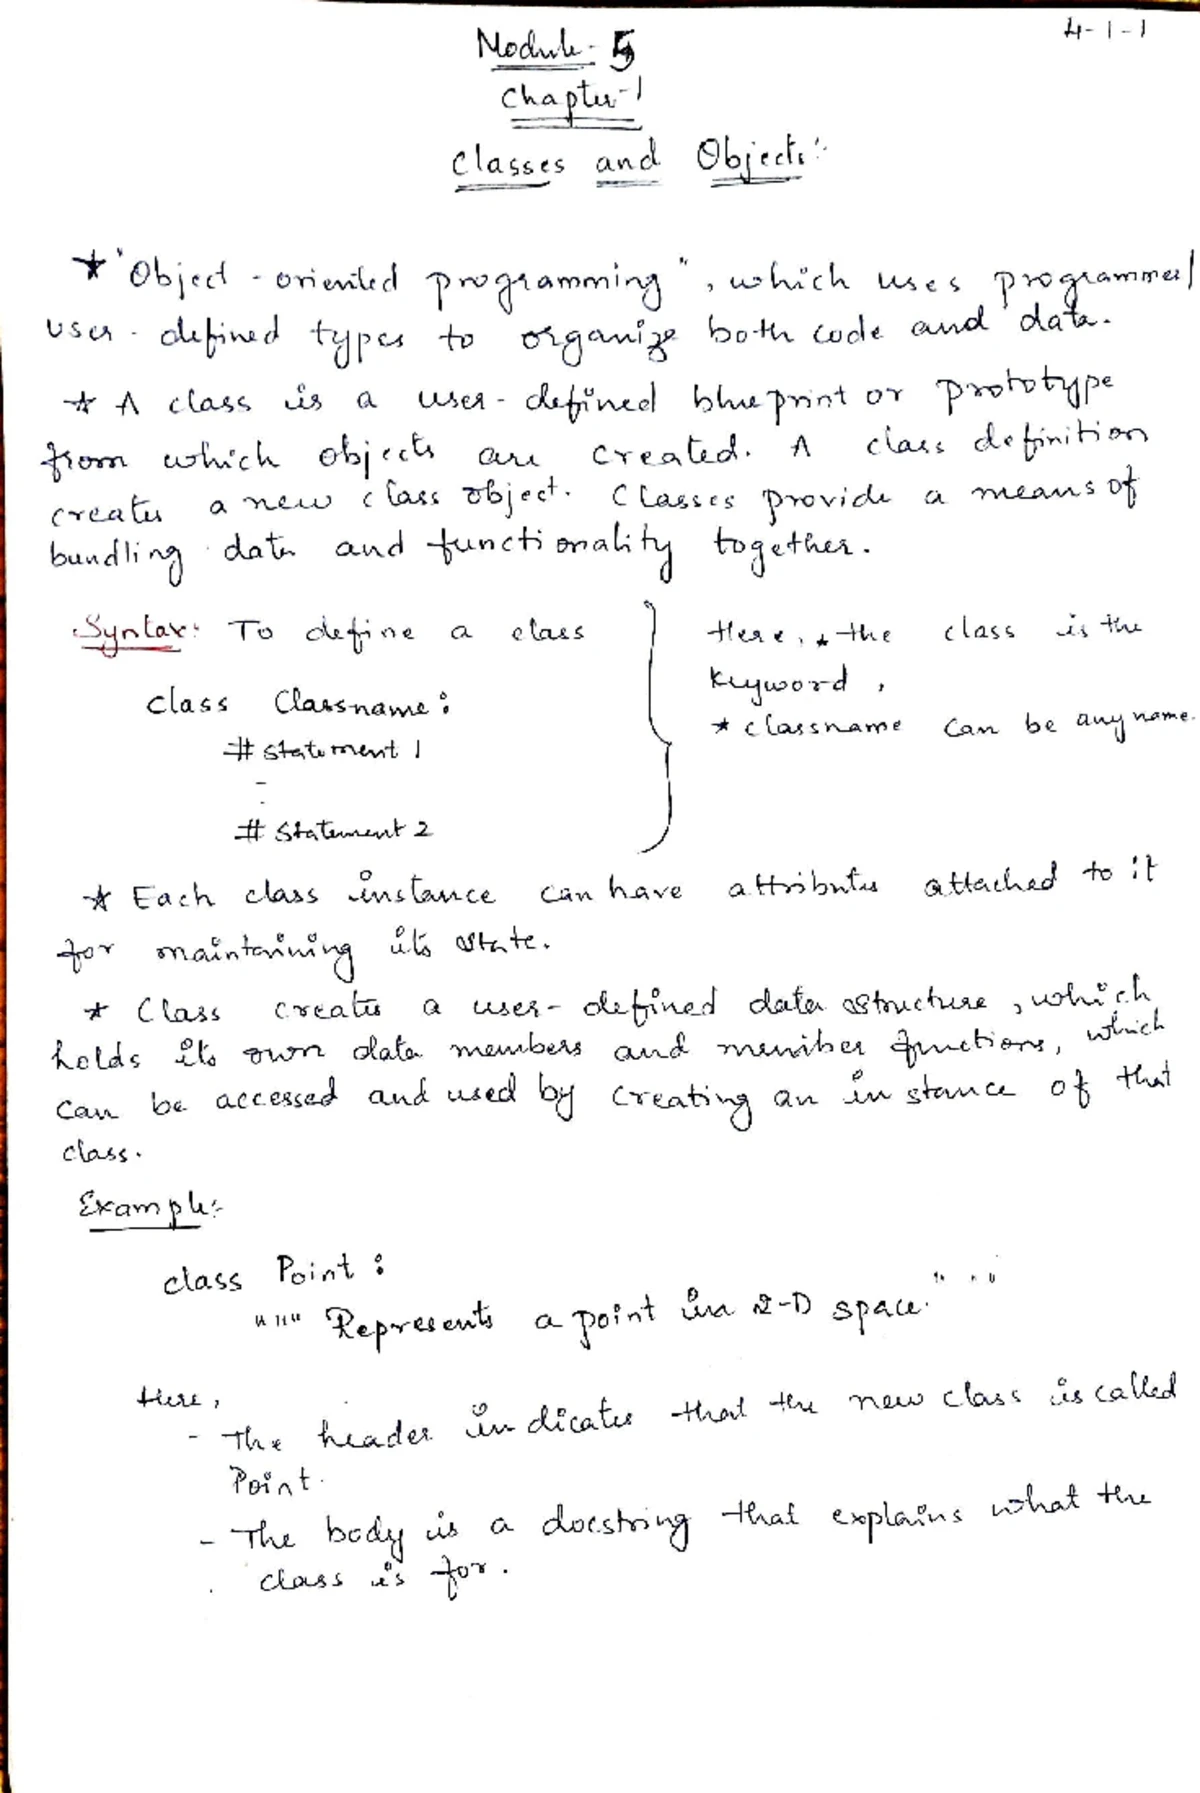 4-1-1
Module-5
Chapter-1
Classes and Objects:-
* "Object-oriented programming", which uses programmer/
user-defined types to organize both code and data.
* A class is a user-defined blueprint or prototype
from which objects are created. A class definition
creates a new class object. Classes provide a means of
bundling data and functionality together.
Syntax: To define a class
class Classname:
# statement 1
-
-
# Statement 2
Here, * the class is the
keyword,
* classname can be any name.
* Each class instance can have attributes attached to it
for maintaining its state.
* Class creates a user-defined data structure, which
holds its own data members and member functions, which
can be accessed and used by creating an instance of that
class.
Example:-
class Point:
""" Represents a point in 2-D space. """
Here,
- The header indicates that the new class is called
Point.
- The body is a docstring that explains what the
class is for.